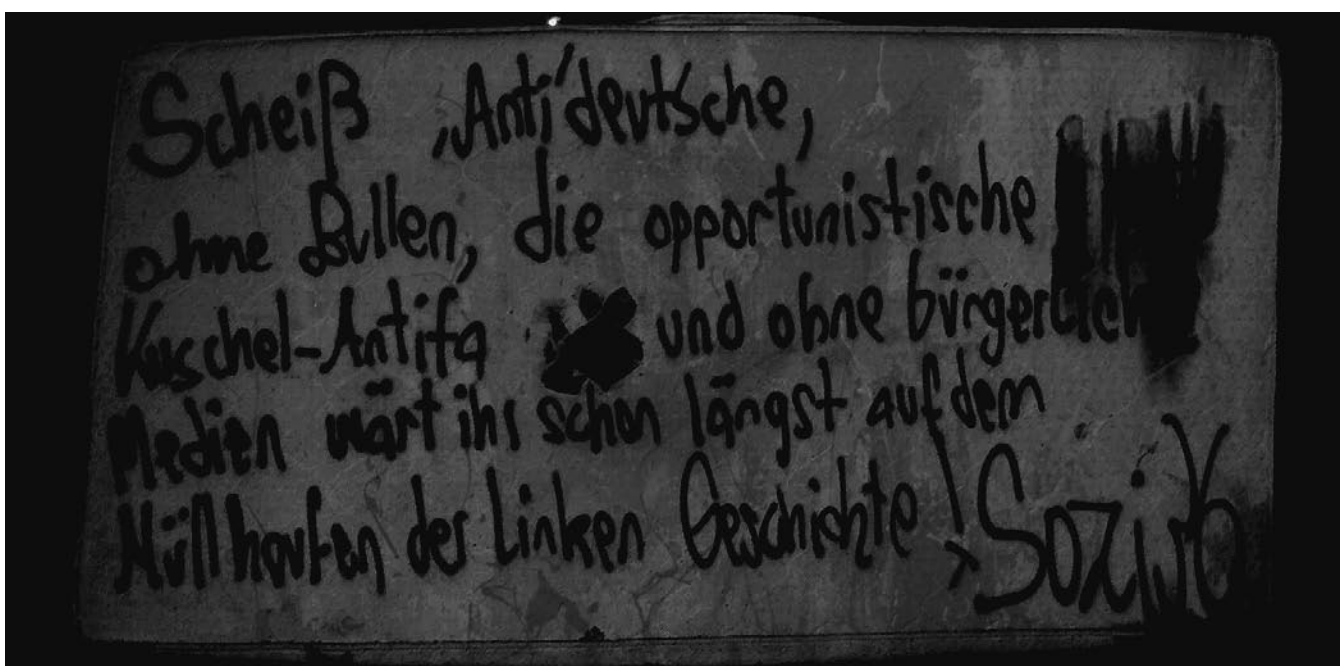 Scheiß ‚Anti'deutsche,
ohne Bullen, die opportunistische
Kuschel-Antifa und ohne bürgerlich
Medien wärt ihr schon längst auf dem
Müllhaufen der Linken Geschichte!